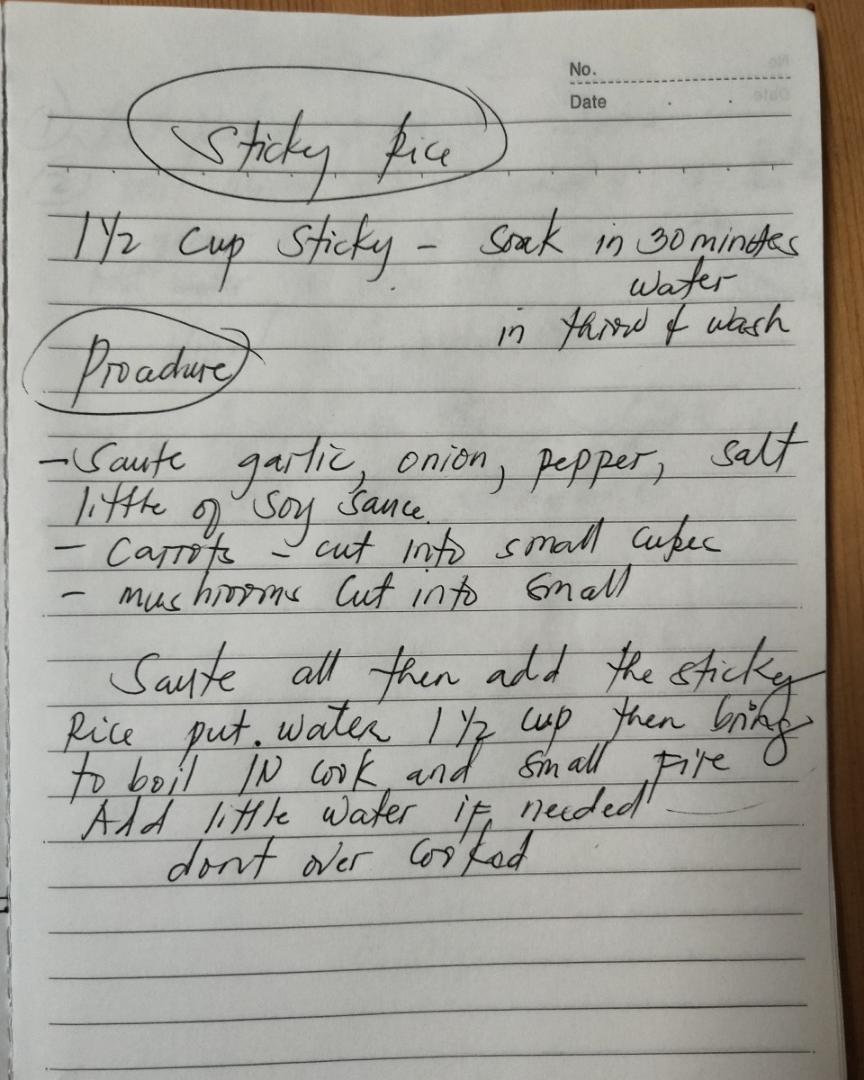 No.
Date
Sticky Rice
1 1/2 cup sticky - soak in 30 minutes
water
in throw & wash
Proadure
- Saute garlic, onion, pepper, salt
little of soy sauce.
- Carrots - cut into small cubec
- mushrooms cut into small
Saute all then add the sticky
Rice put. water 1 1/2 cup then bring
to boil IN cook and small fire
Add little water if needed
dont over cooked